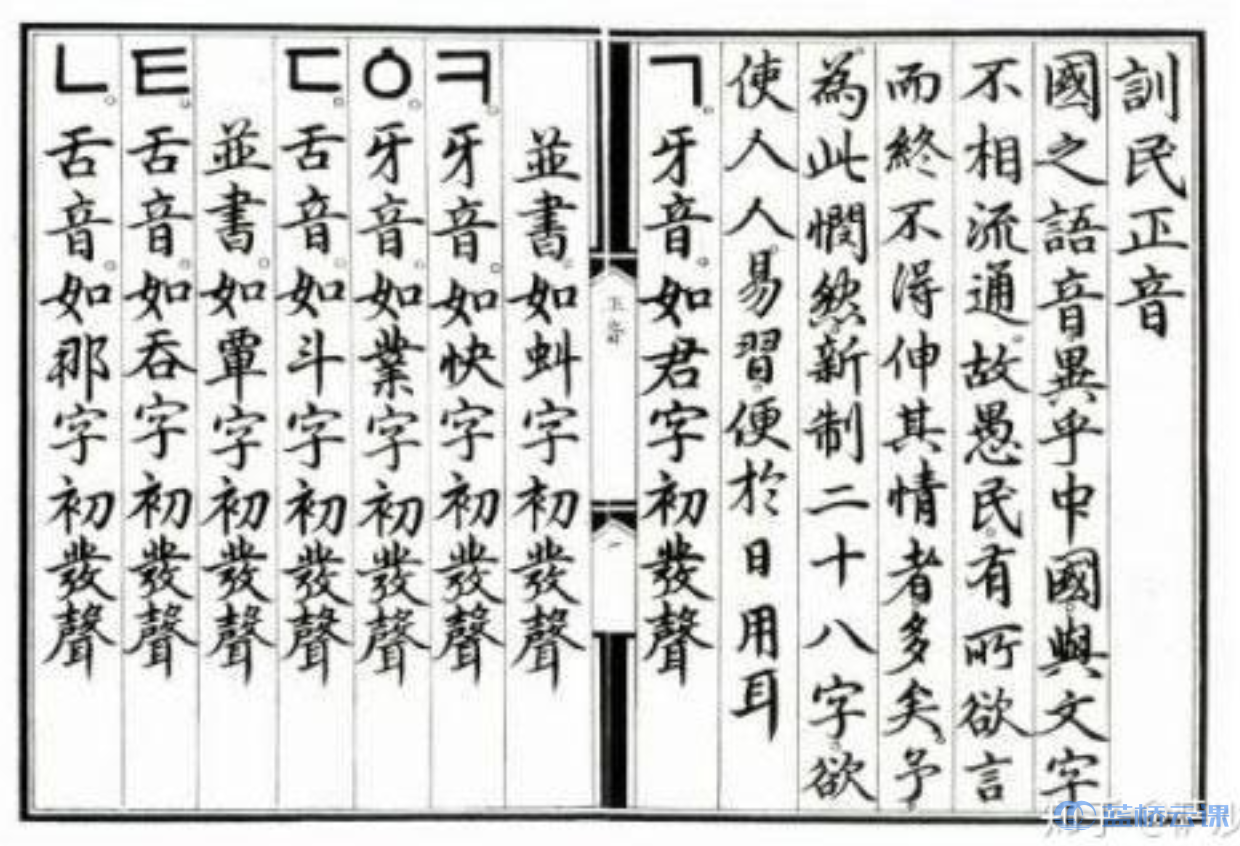 訓民正音
國之語音異乎中國。與文字
不相流通。故愚民。有所欲言
而終不得伸其情者多矣。予
為此憫然。新制二十八字。欲
使人人易習。便於日用耳
ㄱ。牙音。如君字初發聲
一
並書。如虯字初發聲
ㅋ。牙音。如快字初發聲
ㆁ。牙音。如業字初發聲
ㄷ。舌音。如斗字初發聲
並書。如覃字初發聲
ㅌ。舌音。如呑字初發聲
ㄴ。舌音。如那字初發聲
蓝桥云课